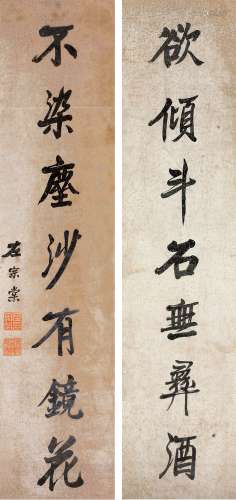 欲傾斗石無彝酒
不染塵沙有鏡花
左宗棠